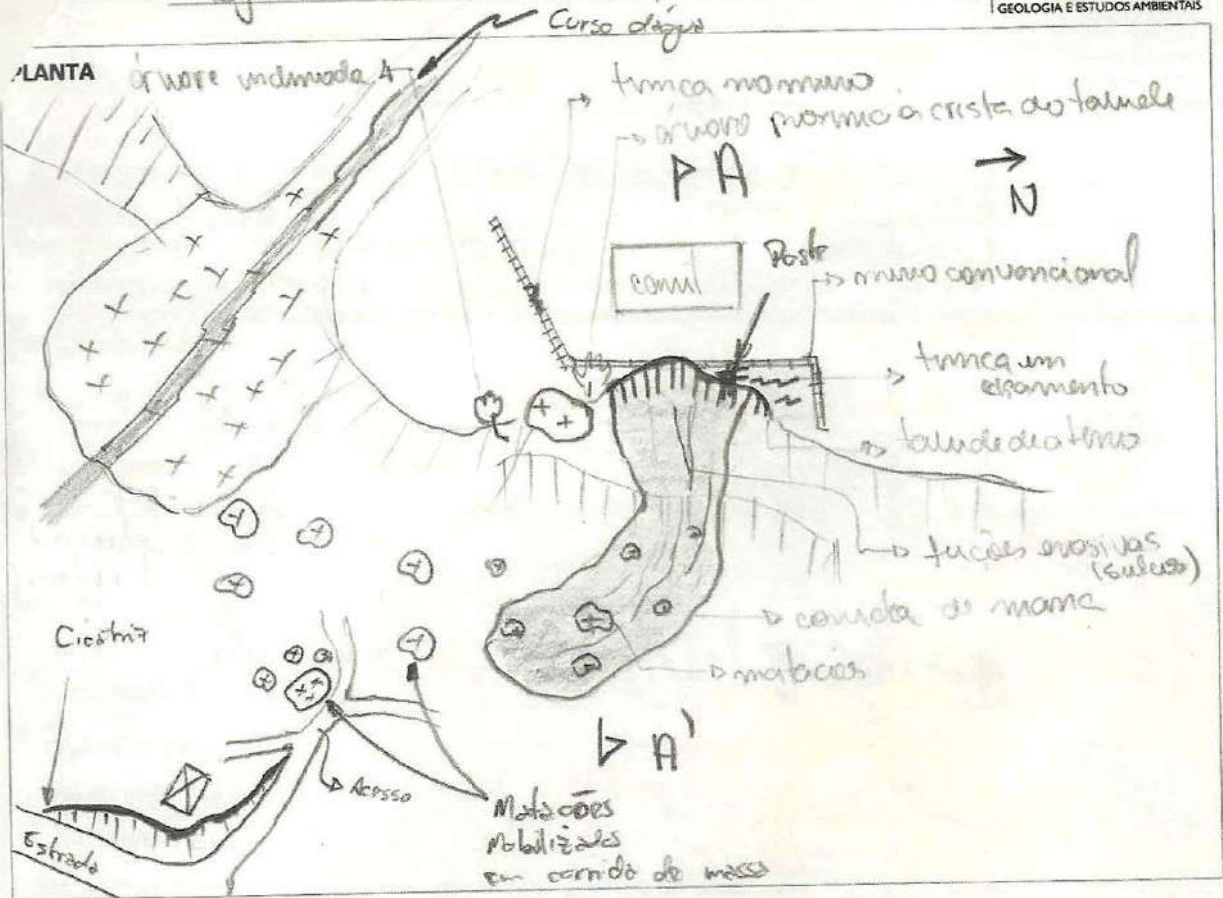 GEOLOGIA E ESTUDOS AMBIENTAIS
Curso d'água
PLANTA
árvore inclinada
trinca no muro
árvore próximo à crista do talude
A
N
canil
Poste
muro convencional
trinca em
talude de aterro
feições erosivas
(sulcos)
corrida de massa
matacões
Cicatriz
A'
Acesso
Matacões
Mobilizados
em corrida de massa
Estrada